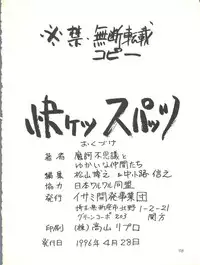 ※禁・無断転載
コピー
快ケツ スパッツ
おくづけ
著者 魔訶不思議と
ゆかいな仲間たち
編集 松山 中小路 信之
協力 日本ワルワル同盟
発行 イサミ開発事業団
埼玉県新座市北野1-2-21
グリーンコーポ203 関方
印刷 (株)高山リプロ
発行日 1996年4月28日